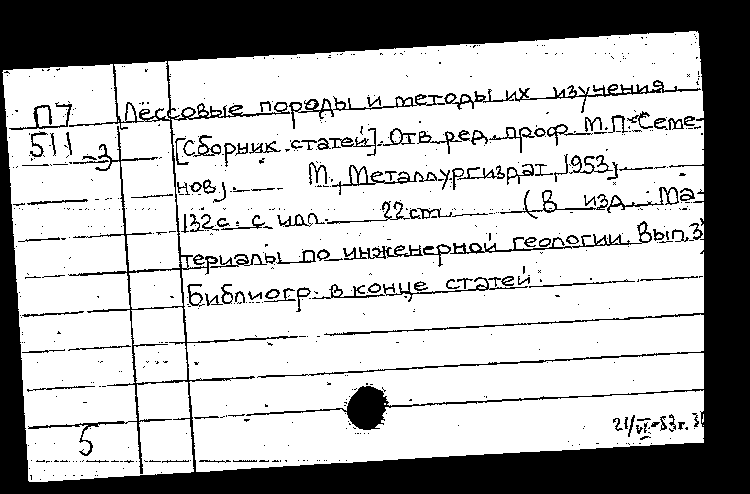 П7
511-3
Лёссовые породы и методы их изучения.
[Сборник статей]. Отв. ред. проф. М.П. Семе-
нов,. М., Металлургиздат, 1953,.
132 с. с илл. 22 cm. (В изд. Ма-
териалы по инженерной геологии. Вып. 3
Библиогр. в конце статей.
5
21/VI-53г.